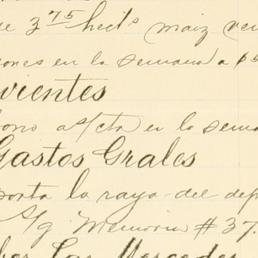 e 3 75 hects maiz ven
ones en la semana a $5
vientes
ono a/cta en la sema
Gastos Grales
porta la raya del dep
S/g Memoria # 37.
Las Mercedes